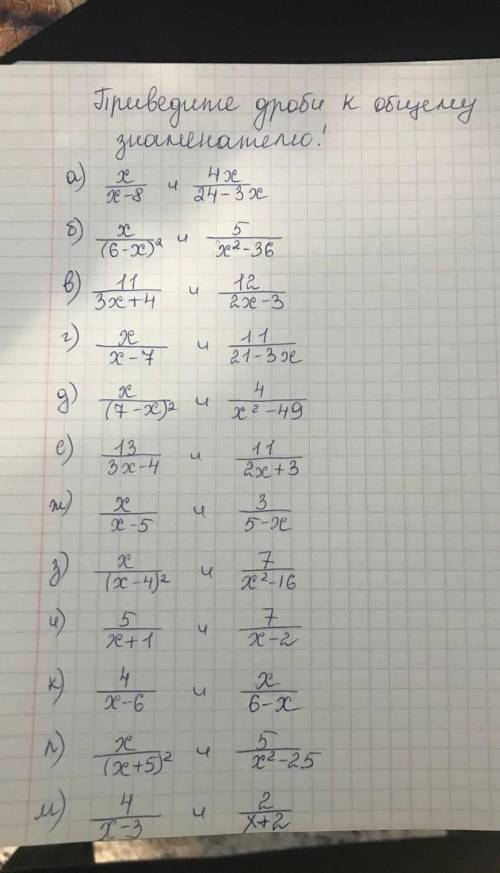 Приведите дроби к общему
знаменателю!
а) x/(x-8) и 4x/(24-3x)
б) x/(6-x)² и 5/(x²-36)
в) 11/(3x+4) и 12/(2x-3)
г) x/(x-7) и 11/(21-3x)
д) x/(7-x)² и 4/(x²-49)
е) 13/(3x-4) и 11/(2x+3)
ж) x/(x-5) и 3/(5-x)
з) x/(x-4)² и 7/(x²-16)
и) 5/(x+1) и 7/(x-2)
к) 4/(x-6) и x/(6-x)
л) x/(x+5)² и 5/(x²-25)
м) 4/(x-3) и 2/(x+2)